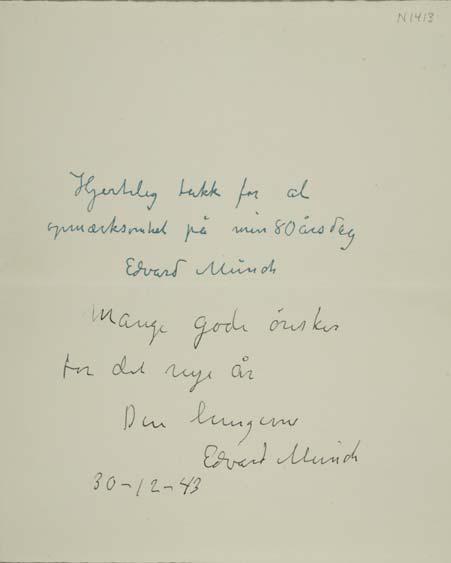 N 1413
Hjertelig takk for al
opmærksomhet på min 80 årsdag
Edvard Munch
Mange gode ønsker
for det nye år
Din hengivne
Edvard Munch
30-12-43